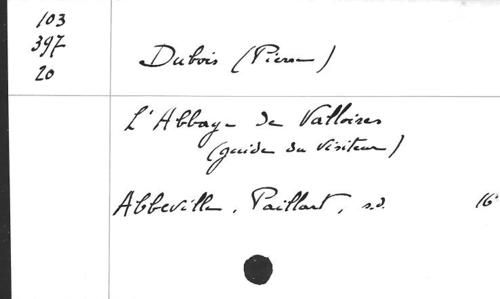 103
397
20
Dubois (Pierre)
L'Abbaye de Valloires
(guide du visiteur)
Abbeville, Paillart, s.d. 16°